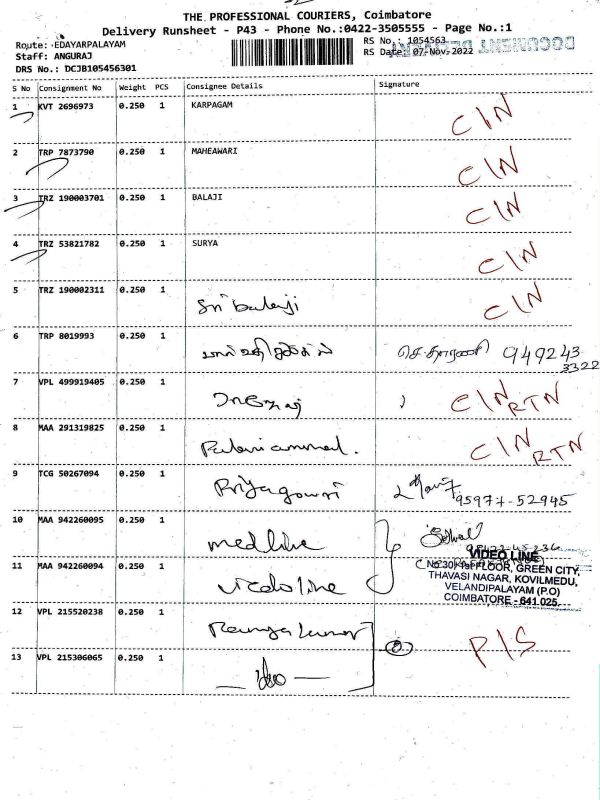 THE PROFESSIONAL COURIERS, Coimbatore
Delivery Runsheet - P43 - Phone No.:0422-3505555 - Page No.:1
Route: EDAYARPALAYAM
Staff: ANGURAJ
DRS No.: DCJB105456301
RS No.: 1054563
RS Date: 07-Nov-2022
S No Consignment No Weight PCS Consignee Details Signature
1 KVT 2696973 0.250 1 KARPAGAM C/N
2 TRP 7873790 0.250 1 MAHEAWARI C/N
3 TRZ 190003701 0.250 1 BALAJI C/N
4 TRZ 53821782 0.250 1 SURYA C/N
5 TRZ 190002311 0.250 1 Sri balaji C/N
6 TRP 8019993 0.250 1 949243
3322
7 VPL 499919405 0.250 1 C/N RTN
8 MAA 291319825 0.250 1 Palaniammal. C/N RTN
9 TCG 50267094 0.250 1 Priyagowri 95977-52945
10 MAA 942260095 0.250 1 medline
11 MAA 942260094 0.250 1 video line
VIDEO LINE
No:30, 1st FLOOR, GREEN CITY,
THAVASI NAGAR, KOVILMEDU,
VELANDIPALAYAM (P.O)
COIMBATORE - 641 025.
12 VPL 215520238 0.250 1 Ramya kumar P/S
13 VPL 215306065 0.250 1